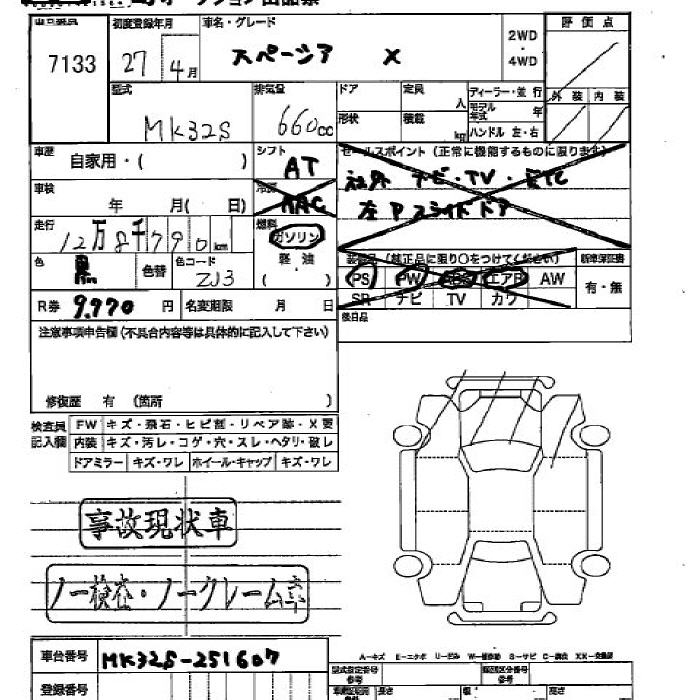 初度登録年月 車名・グレード 評価点
7133 27年4月 スペーシア X 2WD・4WD
型式 排気量 ドア 定員 人 ディーラー・並行 外装 内装
MK32S 660cc 形状 積載 kg モデル年式 年
ハンドル 左・右
車歴 自家用・( ) シフト AT セールスポイント (正常に機能するものに限ります)
社外 ナビ・TV・ETC
車検 年 月( 日) 冷房 AAC 左Pスライドドア
走行 12万8千790km 燃料 ガソリン
軽油
( )
装備品 (純正品に限り○をつけてください) 新車保証書
色 黒 色替 色コード ZJ3 PS PW エアB AW 有・無
SR ナビ TV カワ
R券 9,970円 名変期限 月 日 後日品
注意事項申告欄(不具合内容等は具体的に記入して下さい)
修復歴 有 (箇所 )
検査員記入欄 FW キズ・飛石・ヒビ割・リペア跡・X要
内装 キズ・汚レ・コゲ・穴・スレ・ヘタリ・破レ
ドアミラー キズ・ワレ ホイール・キャップ キズ・ワレ
事故現状車
ノー検査・ノークレーム車
車台番号 MK32S-251607
登録番号
型式指定番号 参考 類別区分番号 参考
長さ 幅 高さ